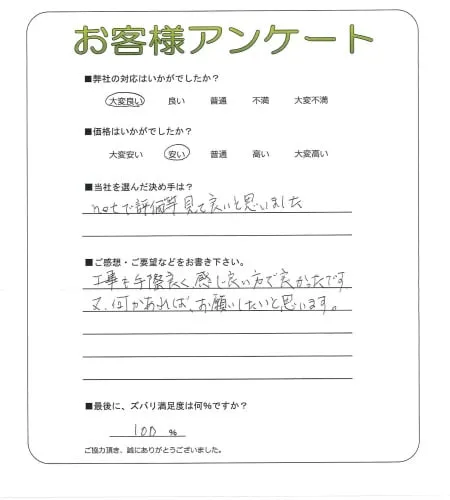 お客様アンケート
■弊社の対応はいかがでしたか？
大変良い 良い 普通 不満 大変不満
■価格はいかがでしたか？
大変安い 安い 普通 高い 大変高い
■当社を選んだ決め手は？
netで評価等見て良いと思いました
■ご感想・ご要望などをお書き下さい。
工事も手際良く感じ良い方で良かったです
又、何かあれば、お願いしたいと思います。
■最後に、ズバリ満足度は何%ですか？
100 %
ご協力頂き、誠にありがとうございました。